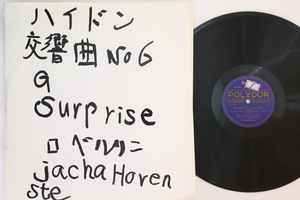 ハイドン
交響曲 No 6
G
Surprise
ロベルリン
jacha Horen
ste
POLYDOR